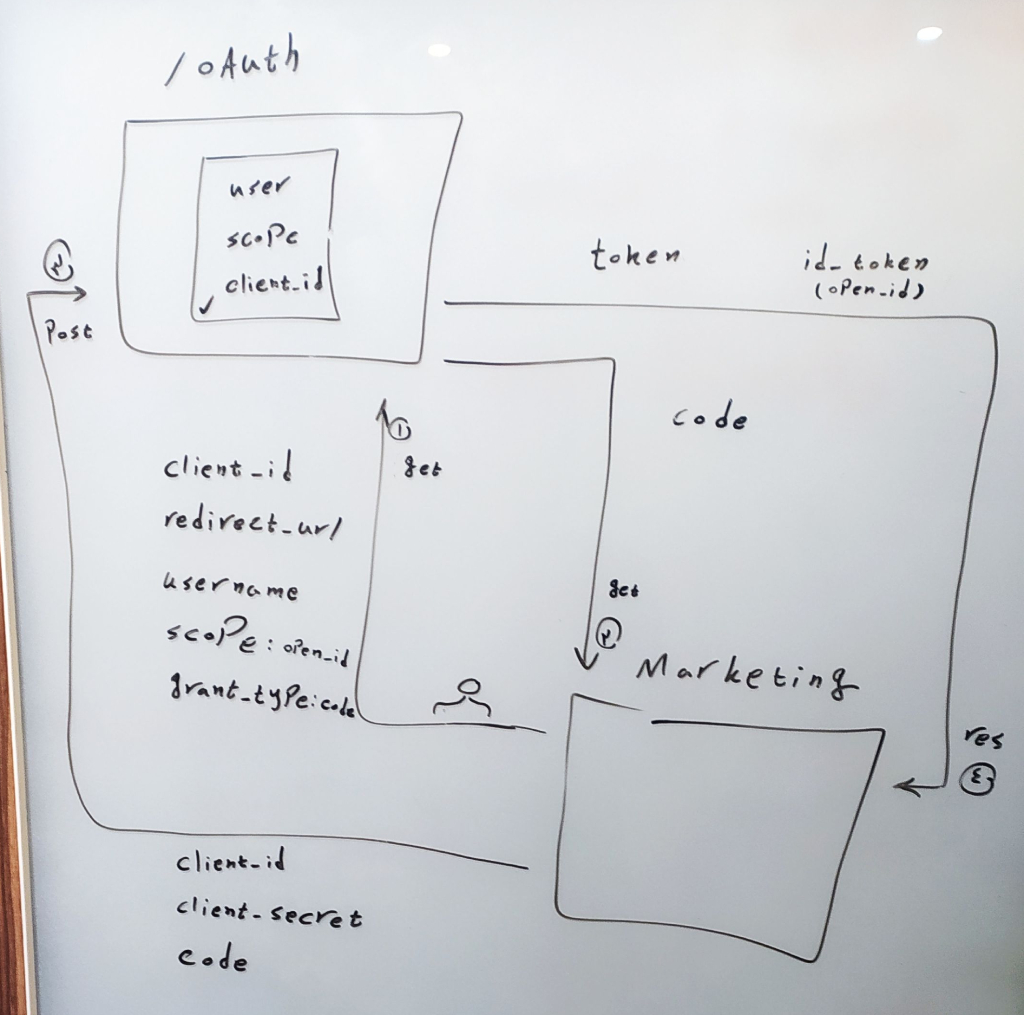 /oAuth
user
scope
client_id
token
id_token
(open_id)
۳
Post
code
۱
get
client_id
redirect_url
username
scope: open_id
grant_type: code
get
۲
Marketing
res
٤
client_id
client_secret
code